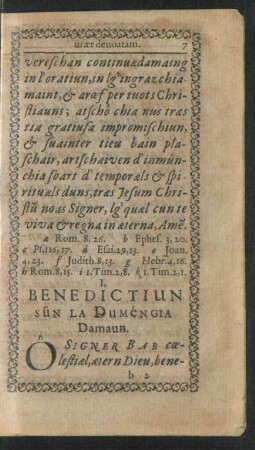 uræt devoatam. 7
vereschan continuædamaing
in l'oratiun, in lg' ingrazchia
maint, & aræf per tuots Chri-
stiauns; atschò chia nus træs
tia gratiusa impromischiun,
& suainter tieu bain pla-
schair, artschaiven d'inmün-
chia soart d'temporæls & spi-
rituæls duns, træs Jesum Chri-
stū noas Signer, lg' quæl cun te
viva & regna in æterna, Amē.
a Rom. 8. 26. b Ephes. 3, 20.
c Ps. 116, 17. d Esai. 29, 13. e Joan.
4, 23. f Judith. 8, 13. g Hebr. 4, 18.
h Rom. 8, 15. i 1. Tim. 2, 8. k 1. Tim. 2, 1.
I.
BENEDICTIUN
SÜN LA DUMENGIA
Damaun.
O SIGNER BAB cœ-
lestiæl, ætern Dieu, bene-
b 2